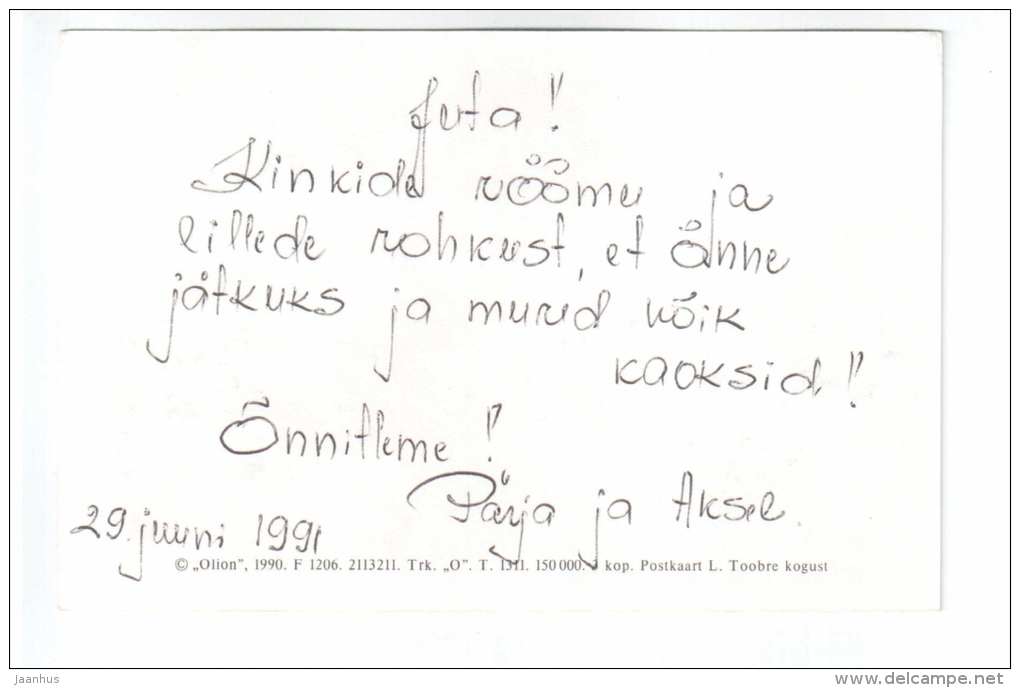 Juta!
Kinkida rõõmu ja
lillede rohkust, et õnne
jätkuks ja mured kõik
kaoksid!
Õnnitleme!
Pärja ja Aksel.
29. juuni 1991
© „Olion", 1990. F 1206. 2113211. Trk. „O". T. 1311. 150 000. kop. Postkaart L. Toobre kogust
Jaanhus
www.delcampe.net